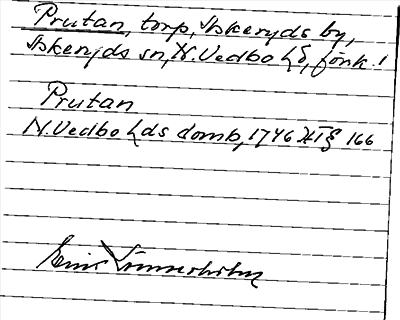 Prutan, torp, Askeryds by,
Askeryds sn, N. Vedbo hd, Jönk. l
Prutan
N. Vedbo hds domb, 1746 HT § 166
Eric Linnerholm